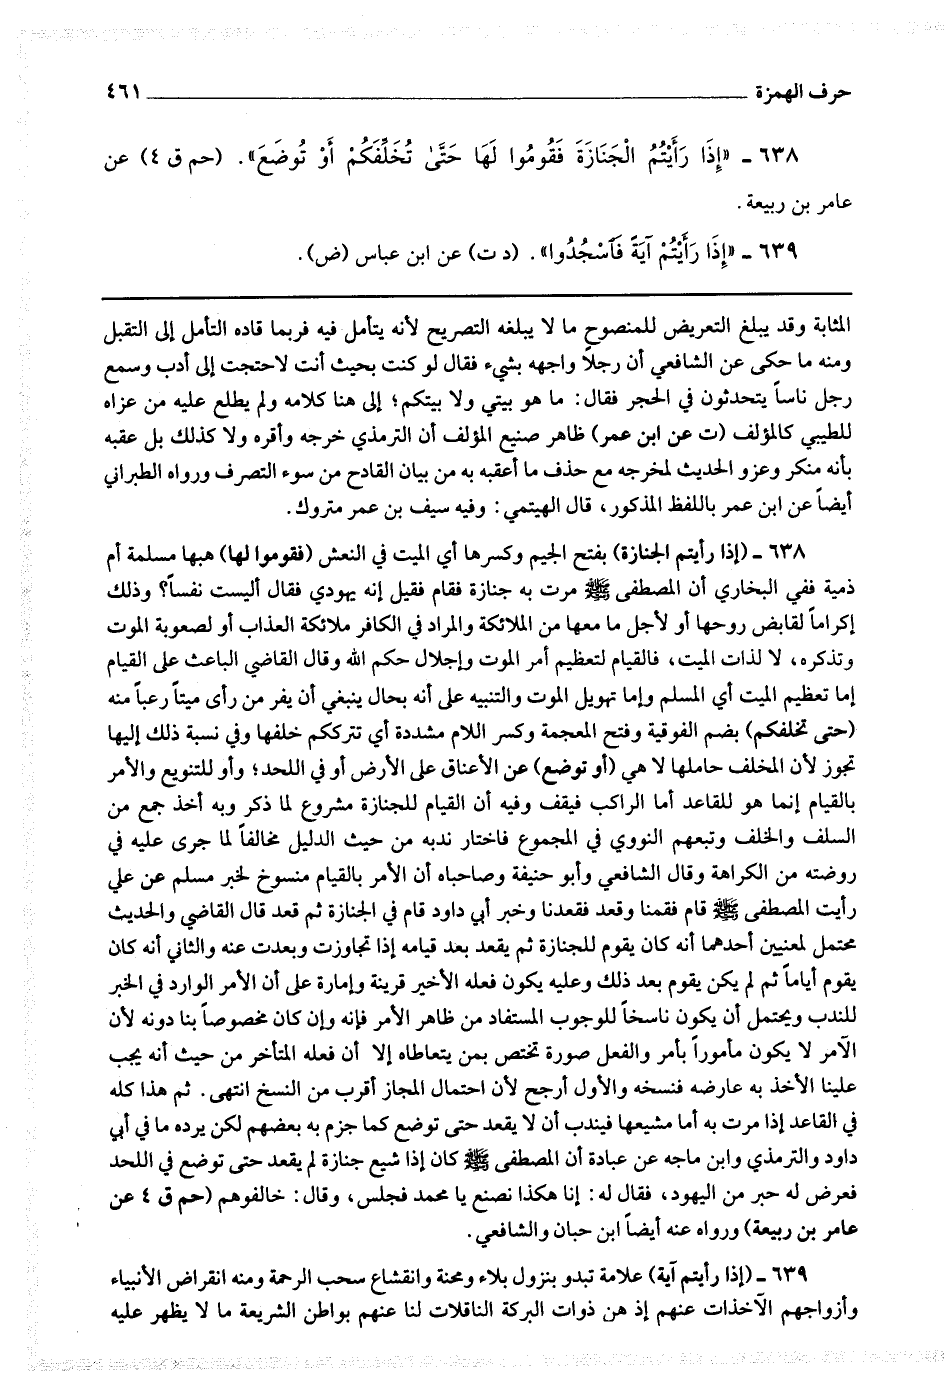 حرف الهمزة ٤٦١
٦٣٨ ـ «إِذَا رَأَيْتُمُ الْجَنَازَةَ فَقُومُوا لَهَا حَتَّىٰ تُخَلِّفَكُمْ أَوْ تُوضَعَ». (حم ق ٤) عن
عامر بن ربيعة.
٦٣٩ ـ «إِذَا رَأَيْتُمْ آيَةً فَاسْجُدُوا». (د ت) عن ابن عباس (ض).
المثابة وقد يبلغ التعريض للمنصوح ما لا يبلغه التصريح لأنه يتأمل فيه فربما قاده التأمل إلى التقبل
ومنه ما حكى عن الشافعي أن رجلاً واجهه بشيء فقال لو كنت بحيث أنت لاحتجت إلى أدب وسمع
رجل ناساً يتحدثون في الحجر فقال: ما هو بيتي ولا بيتكم؛ إلى هنا كلامه ولم يطلع عليه من عزاه
للطيبي كالمؤلف (ت عن ابن عمر) ظاهر صنيع المؤلف أن الترمذي خرجه وأقره ولا كذلك بل عقبه
بأنه منكر وعزو الحديث لمخرجه مع حذف ما أعقبه به من بيان القادح من سوء التصرف ورواه الطبراني
أيضاً عن ابن عمر باللفظ المذكور، قال الهيتمي: وفيه سيف بن عمر متروك.
٦٣٨ ـ (إذا رأيتم الجنازة) بفتح الجيم وكسرها أي الميت في النعش (فقوموا لها) هبها مسلمة أم
ذمية ففي البخاري أن المصطفى ﷺ مرت به جنازة فقام فقيل إنه يهودي فقال أليست نفساً؟ وذلك
إكراماً لقابض روحها أو لأجل ما معها من الملائكة والمراد في الكافر ملائكة العذاب أو لصعوبة الموت
وتذكره، لا لذات الميت، فالقيام لتعظيم أمر الموت وإجلال حكم الله وقال القاضي الباعث على القيام
إما تعظيم الميت أي المسلم وإما تهويل الموت والتنبيه على أنه بحال ينبغي أن يفر من رأى ميتاً رعباً منه
(حتى تخلفكم) بضم الفوقية وفتح المعجمة وكسر اللام مشددة أي تترككم خلفها وفي نسبة ذلك إليها
تجوز لأن المخلف حاملها لا هي (أو توضع) عن الأعناق على الأرض أو في اللحد؛ وأو للتنويع والأمر
بالقيام إنما هو للقاعد أما الراكب فيقف وفيه أن القيام للجنازة مشروع لما ذكر وبه أخذ جمع من
السلف والخلف وتبعهم النووي في المجموع فاختار ندبه من حيث الدليل مخالفاً لما جرى عليه في
روضته من الكراهة وقال الشافعي وأبو حنيفة وصاحباه أن الأمر بالقيام منسوخ لخبر مسلم عن علي
رأيت المصطفى ﷺ قام فقمنا وقعد فقعدنا وخبر أبي داود قام في الجنازة ثم قعد قال القاضي والحديث
محتمل لمعنيين أحدهما أنه كان يقوم للجنازة ثم يقعد بعد قيامه إذا تجاوزت وبعدت عنه والثاني أنه كان
يقوم أياماً ثم لم يكن يقوم بعد ذلك وعليه يكون فعله الأخير قرينة وإمارة على أن الأمر الوارد في الخبر
للندب ويحتمل أن يكون ناسخاً للوجوب المستفاد من ظاهر الأمر فإنه وإن كان مخصوصاً بنا دونه لأن
الآمر لا يكون مأموراً بأمر والفعل صورة تختص بمن يتعاطاه إلا أن فعله المتأخر من حيث أنه يجب
علينا الأخذ به عارضه فنسخه والأول أرجح لأن احتمال المجاز أقرب من النسخ انتهى. ثم هذا كله
في القاعد إذا مرت به أما مشيعها فيندب أن لا يقعد حتى توضع كما جزم به بعضهم لكن يرده ما في أبي
داود والترمذي وابن ماجه عن عبادة أن المصطفى ﷺ كان إذا شيع جنازة لم يقعد حتى توضع في اللحد
فعرض له حبر من اليهود، فقال له: إنا هكذا نصنع يا محمد فجلس، وقال: خالفوهم (حم ق ٤ عن
عامر بن ربيعة) ورواه عنه أيضاً ابن حبان والشافعي.
٦٣٩ ـ (إذا رأيتم آية) علامة تبدو بنزول بلاء ومحنة وانقشاع سحب الرحمة ومنه انقراض الأنبياء
وأزواجهم الآخذات عنهم إذ هن ذوات البركة الناقلات لنا عنهم بواطن الشريعة ما لا يظهر عليه